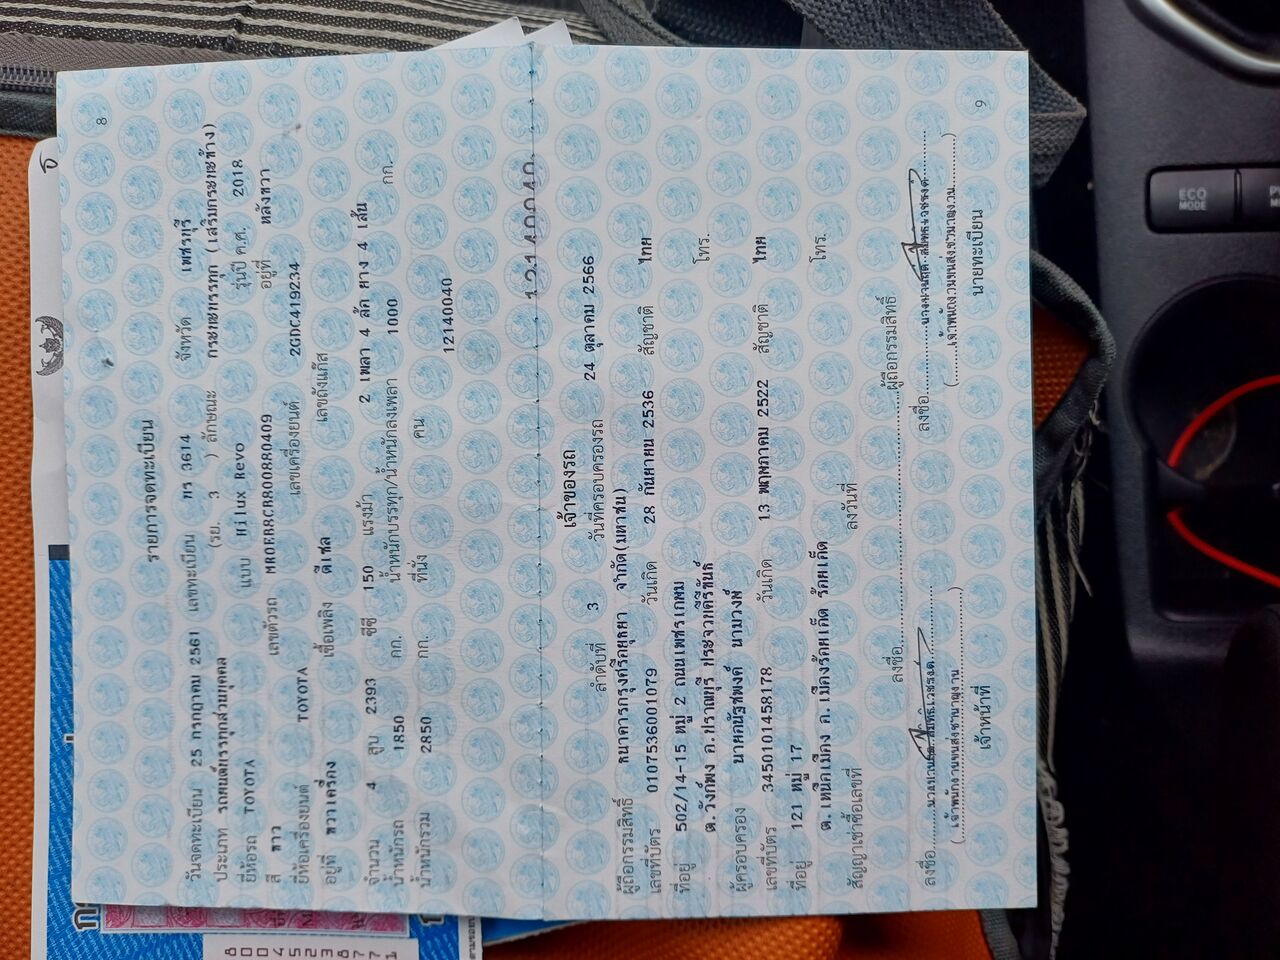 8
รายการจดทะเบียน
วันจดทะเบียน 25 กรกฎาคม 2561 เลขทะเบียน 3614 จังหวัด เพชรบุรี
ประเภท รถยนต์บรรทุกส่วนบุคคล (รย. 3 ) ลักษณะ กระบะบรรทุก (เสริมกระบะข้าง)
ยี่ห้อรถ TOYOTA แบบ Hilux Revo รุ่นปี ค.ศ. 2018
สี ขาว เลขตัวรถ MR0EB8CB800880409 อยู่ที่ หลังขวา
ยี่ห้อเครื่องยนต์ TOYOTA เลขเครื่องยนต์ 2GDC419234
อยู่ที่ ขวาเครื่อง เชื้อเพลิง ดีเซล เลขถังแก๊ส
จำนวน 4 สูบ 2393 ซีซี 150 แรงม้า 2 เพลา 4 ล้อ ยาง 4 เส้น
น้ำหนักรถ 1850 กก. น้ำหนักบรรทุก/น้ำหนักลงเพลา 1000 กก.
น้ำหนักรวม 2850 กก. ที่นั่ง คน
12140040
12140040
เจ้าของรถ
ลำดับที่ 3 วันที่ครอบครองรถ 24 ตุลาคม 2566
ผู้ถือกรรมสิทธิ์ ธนาคารกรุงศรีอยุธยา จำกัด(มหาชน)
เลขที่บัตร 0107536001079 วันเกิด 28 กันยายน 2536 สัญชาติ ไทย
ที่อยู่ 502/14-15 หมู่ 2 ถนนเพชรเกษม โทร.
ต.วังก์พง อ.ปราณบุรี ประจวบคีรีขันธ์
ผู้ครอบครอง นายคณัฐพงศ์ นามวงษ์
เลขที่บัตร 3450101458178 วันเกิด 13 พฤษภาคม 2522 สัญชาติ ไทย
ที่อยู่ 121 หมู่ 17 โทร.
ต.เหนือเมือง อ.เมืองร้อยเอ็ด ร้อยเอ็ด
สัญญาเช่าซื้อเลขที่ ลงวันที่
ลงชื่อ ผู้ถือกรรมสิทธิ์
ลงชื่อ ลงชื่อ
(เจ้าพนักงานขนส่งชำนาญงาน) (เจ้าพนักงานขนส่งชำนาญงาน)
เจ้าหน้าที่ นายทะเบียน
9
ECO
MODE